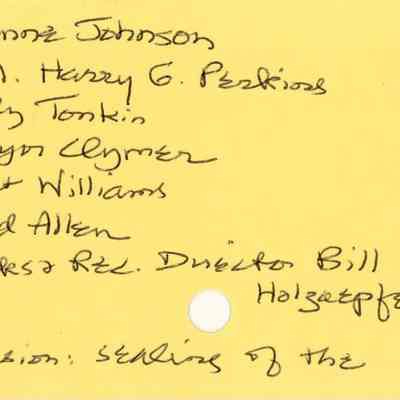 nne Johnson
. Harry G. Perkins
y Tonkin
yn Clymer
t Williams
d Allen
ks & Rec. Director Bill
Holzaepfe
sion: sealing of the